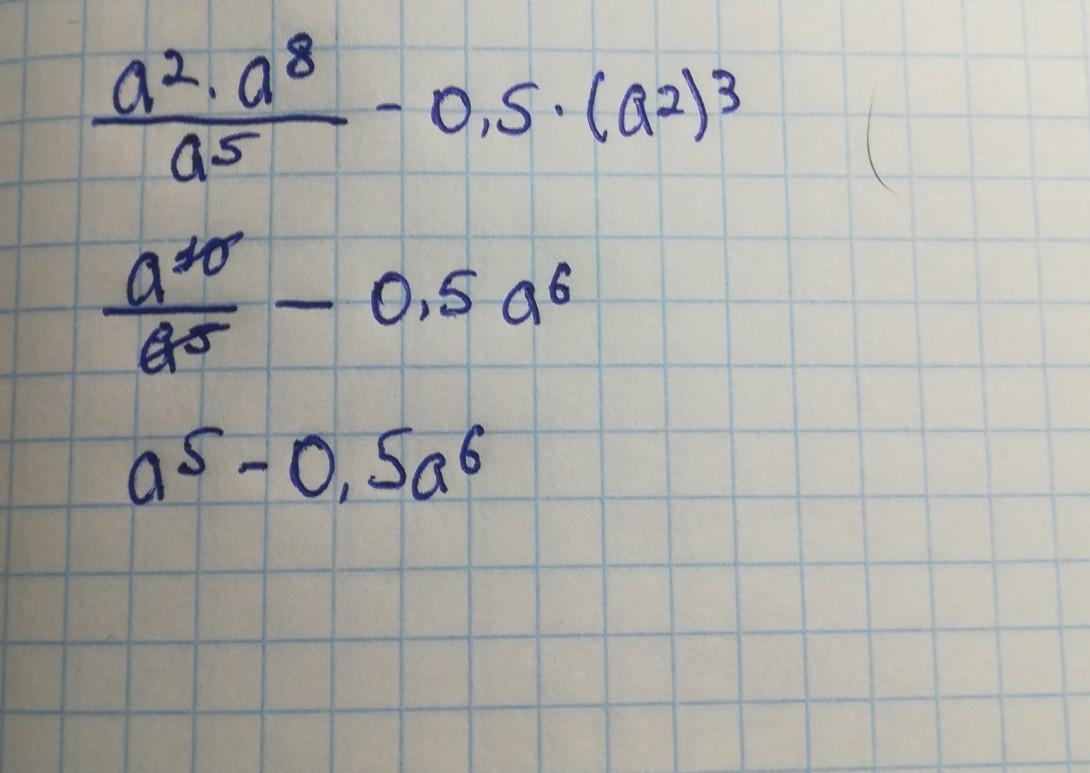 a² · a⁸ / a⁵ - 0,5 · (a²)³
a¹⁰ / a⁵ - 0,5 a⁶
a⁵ - 0,5a⁶